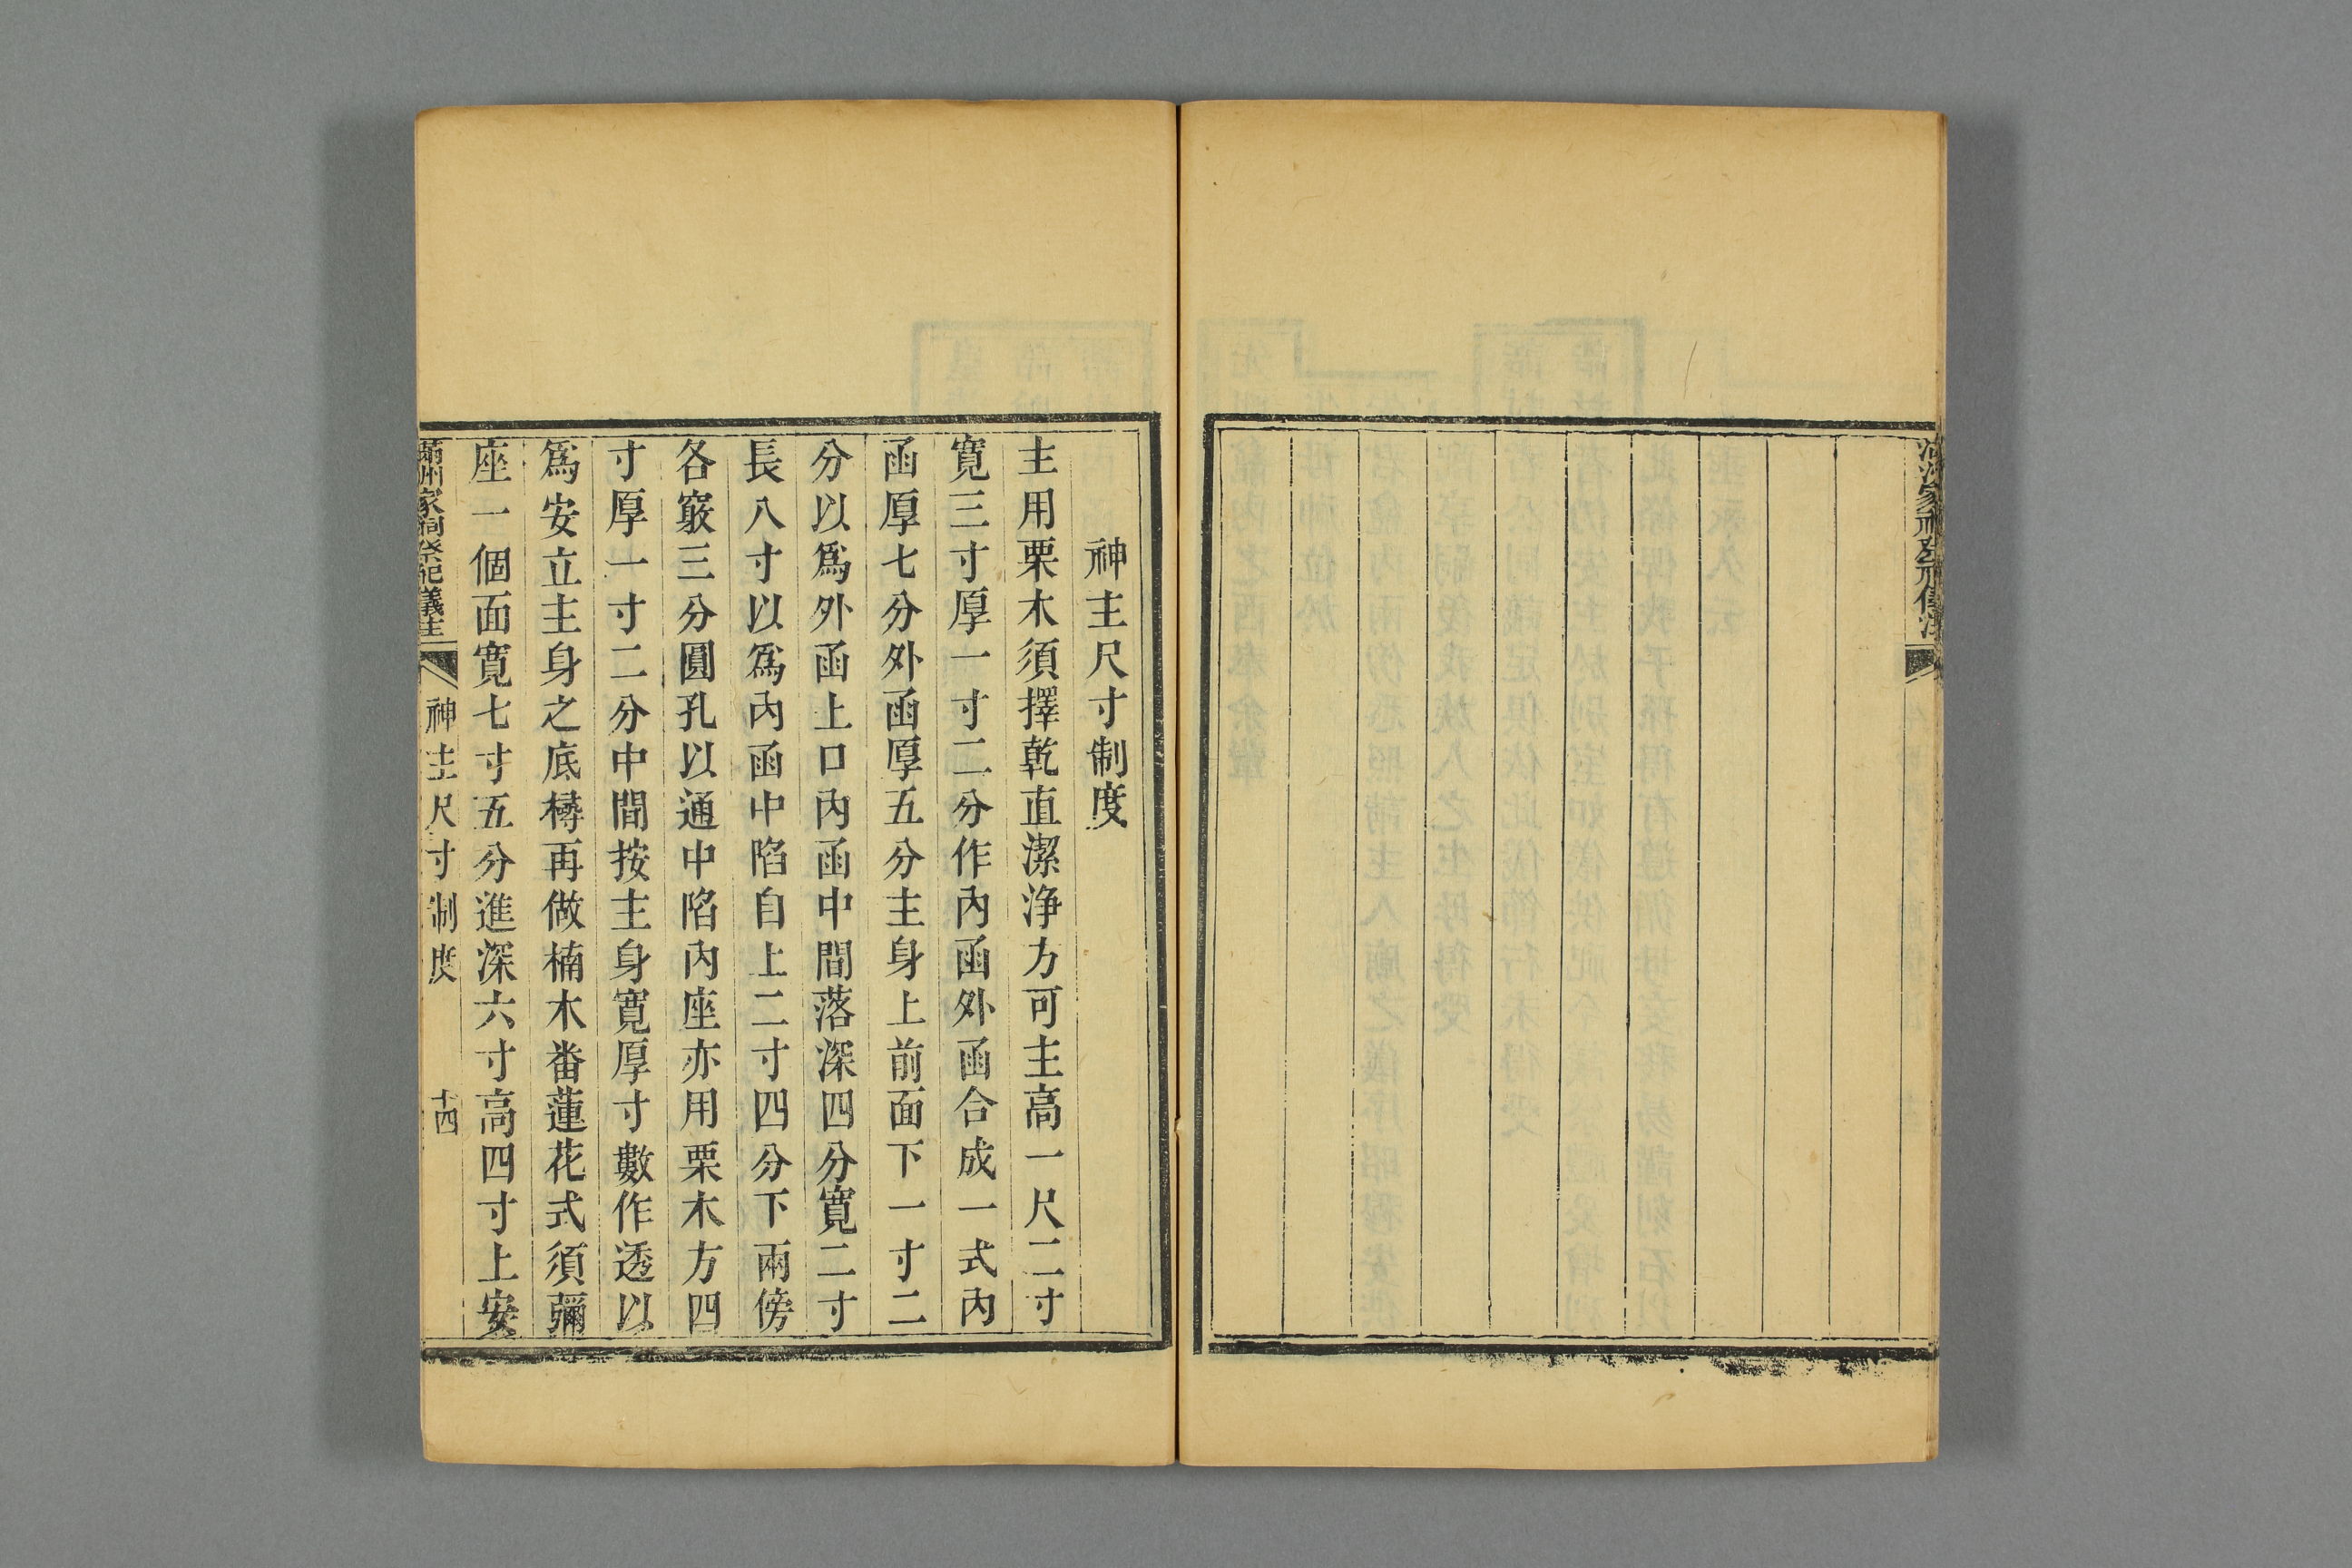 神主尺寸制度
主用栗木須擇乾直潔浄方可主高一尺二寸
寛三寸厚一寸二分作內函外函合成一式內
函厚七分外函厚五分主身上前面下一寸二
分以爲外函上口內函中間落深四分寛二寸
長八寸以爲內函中陷自上二寸四分下兩傍
各竅三分圓孔以通中陷內座亦用栗木方四
寸厚一寸二分中間按主身寛厚寸數作透以
爲安立主身之底樽再做楠木番蓮花式須彌
座一個面寛七寸五分進深六寸高四寸上安
滿洲家祠祭祀儀注
神主尺寸制度
十四